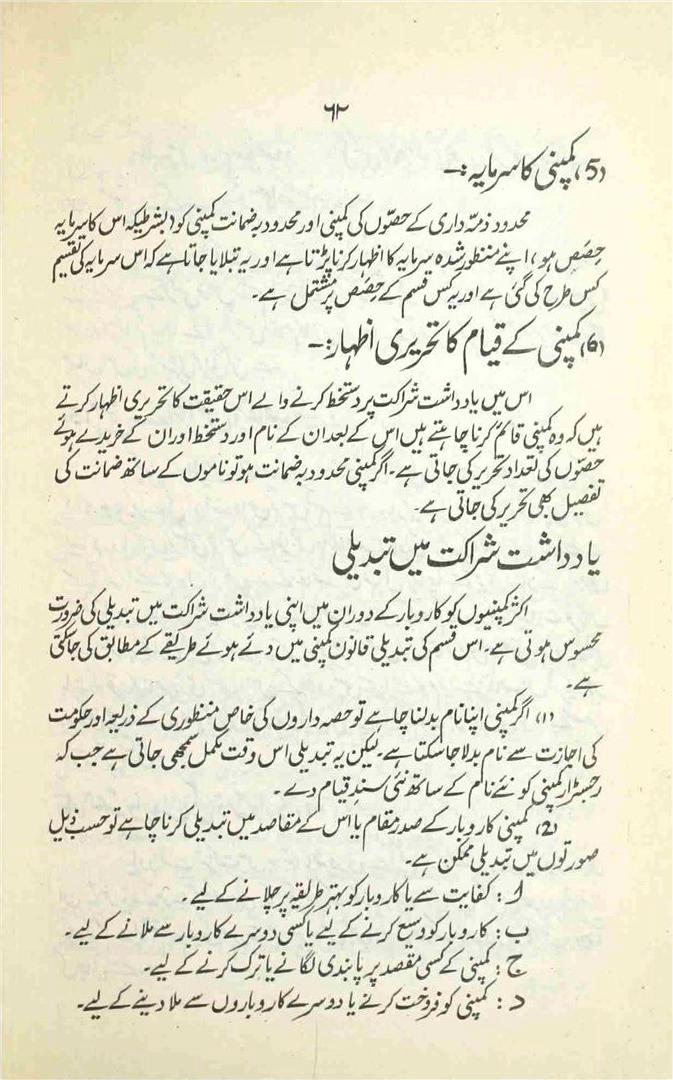 ۶۲
(5) کمپنی کا سرمایہ :۔
محدود ذمّہ داری کے حصّوں کی کمپنی اور محدود بہ ضمانت کمپنی کو (بشرطیکہ اس کا سرمایہ
حِصَص ہو) اپنے منظور شدہ سرمایہ کا اظہار کرنا پڑتا ہے اور یہ بتلایا جاتا ہے کہ اس سرمایہ کی تقسیم
کس طرح کی گئی ہے اور یہ کس قسم کے حِصَص پر مشتمل ہے۔
(6) کمپنی کے قیام کا تحریری اظہار :۔
اس میں یادداشت شراکت پر دستخط کرنے والے اس حقیقت کا تحریری اظہار کرتے
ہیں کہ وہ کمپنی قائم کرنا چاہتے ہیں اس کے بعد ان کے نام اور دستخط اور ان کے خریدے ہوئے
حصّوں کی تعداد تحریر کی جاتی ہے۔ اگر کمپنی محدود بہ ضمانت ہو تو ناموں کے ساتھ ضمانت کی
تفصیل بھی تحریر کی جاتی ہے۔
یادداشت شراکت میں تبدیلی
اکثر کمپنیوں کو کاروبار کے دوران میں اپنی یادداشت شراکت میں تبدیلی کی ضرورت
محسوس ہوتی ہے۔ اس قسم کی تبدیلی قانون کمپنی میں دئے ہوئے طریقے کے مطابق کی جاسکتی
ہے۔
(1) اگر کمپنی اپنا نام بدلنا چاہے تو حصہ داروں کی خاص منظوری کے ذریعہ اور حکومت
کی اجازت سے نام بدلا جاسکتا ہے۔ لیکن یہ تبدیلی اس وقت مکمل سمجھی جاتی ہے جب کہ
رجسٹرار کمپنی کو نئے نام کے ساتھ نئی سندِ قیام دے۔
(2) کمپنی کاروبار کے صدر مقام یا اس کے مقاصد میں تبدیلی کرنا چاہے تو حسب ذیل
صورتوں میں تبدیلی ممکن ہے۔
ا : کفایت سے یا کاروبار کو بہتر طریقہ پر چلانے کے لیے۔
ب : کاروبار کو وسیع کرنے کے لیے یا کسی دوسرے کاروبار سے ملانے کے لیے۔
ج : کمپنی کے کسی مقصد پر پابندی لگانے یا ترک کرنے کے لیے۔
د : کمپنی کو فروخت کرنے یا دوسرے کاروباروں سے ملا دینے کے لیے۔